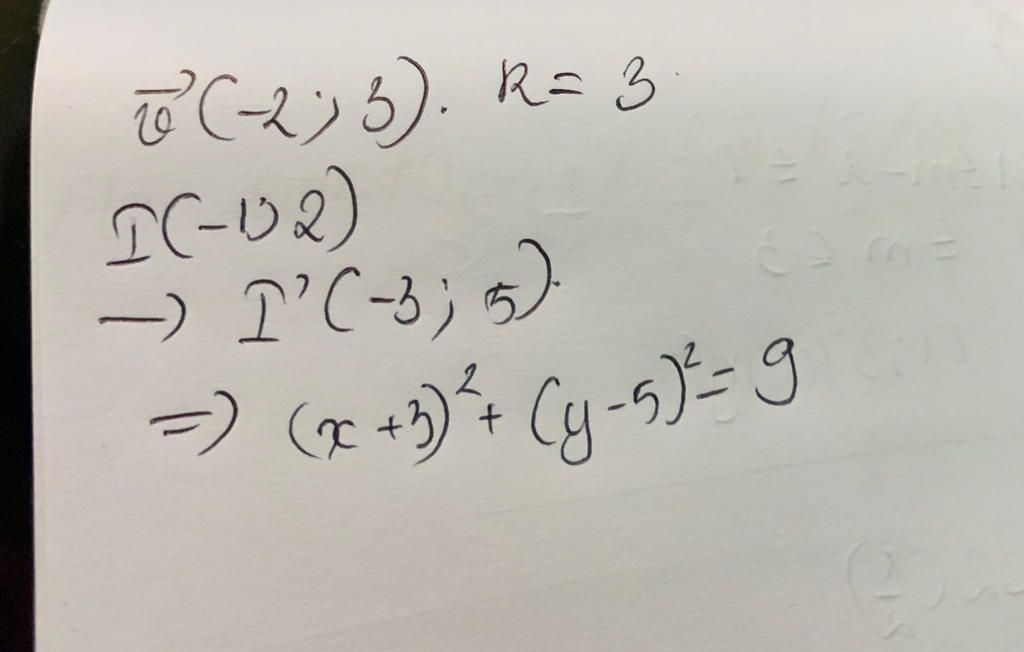 v⃗(-2; 3). R = 3
I(-1; 2)
→ I'(-3; 5).
=> (x+3)² + (y-5)² = 9